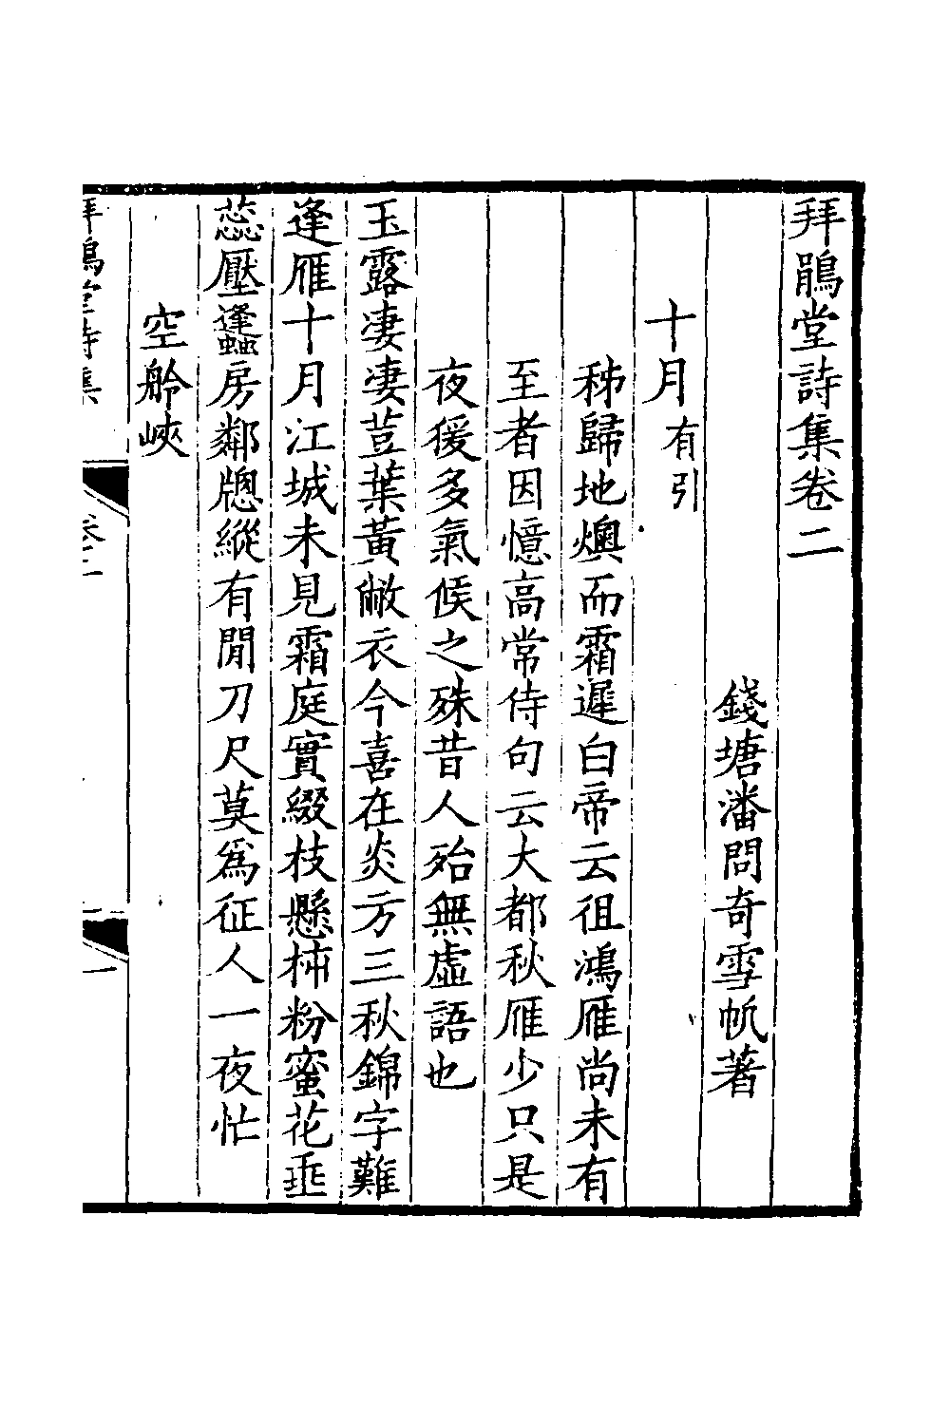 拜鵑堂詩集卷二
錢塘潘問奇雪帆著
十月有引
秭歸地燠而霜遲白帝云徂鴻雁尚未有
至者因憶高常侍句云大都秋雁少只是
夜猨多氣候之殊昔人殆無虛語也
玉露凄凄荳葉黃敝衣今喜在炎方三秋錦字難
逢雁十月江城未見霜庭實綴枝懸柿粉蜜花垂
蕊壓蠭房鄰牕縱有閒刀尺莫爲征人一夜忙
空舲峽
拜鵑堂詩集
卷二
一